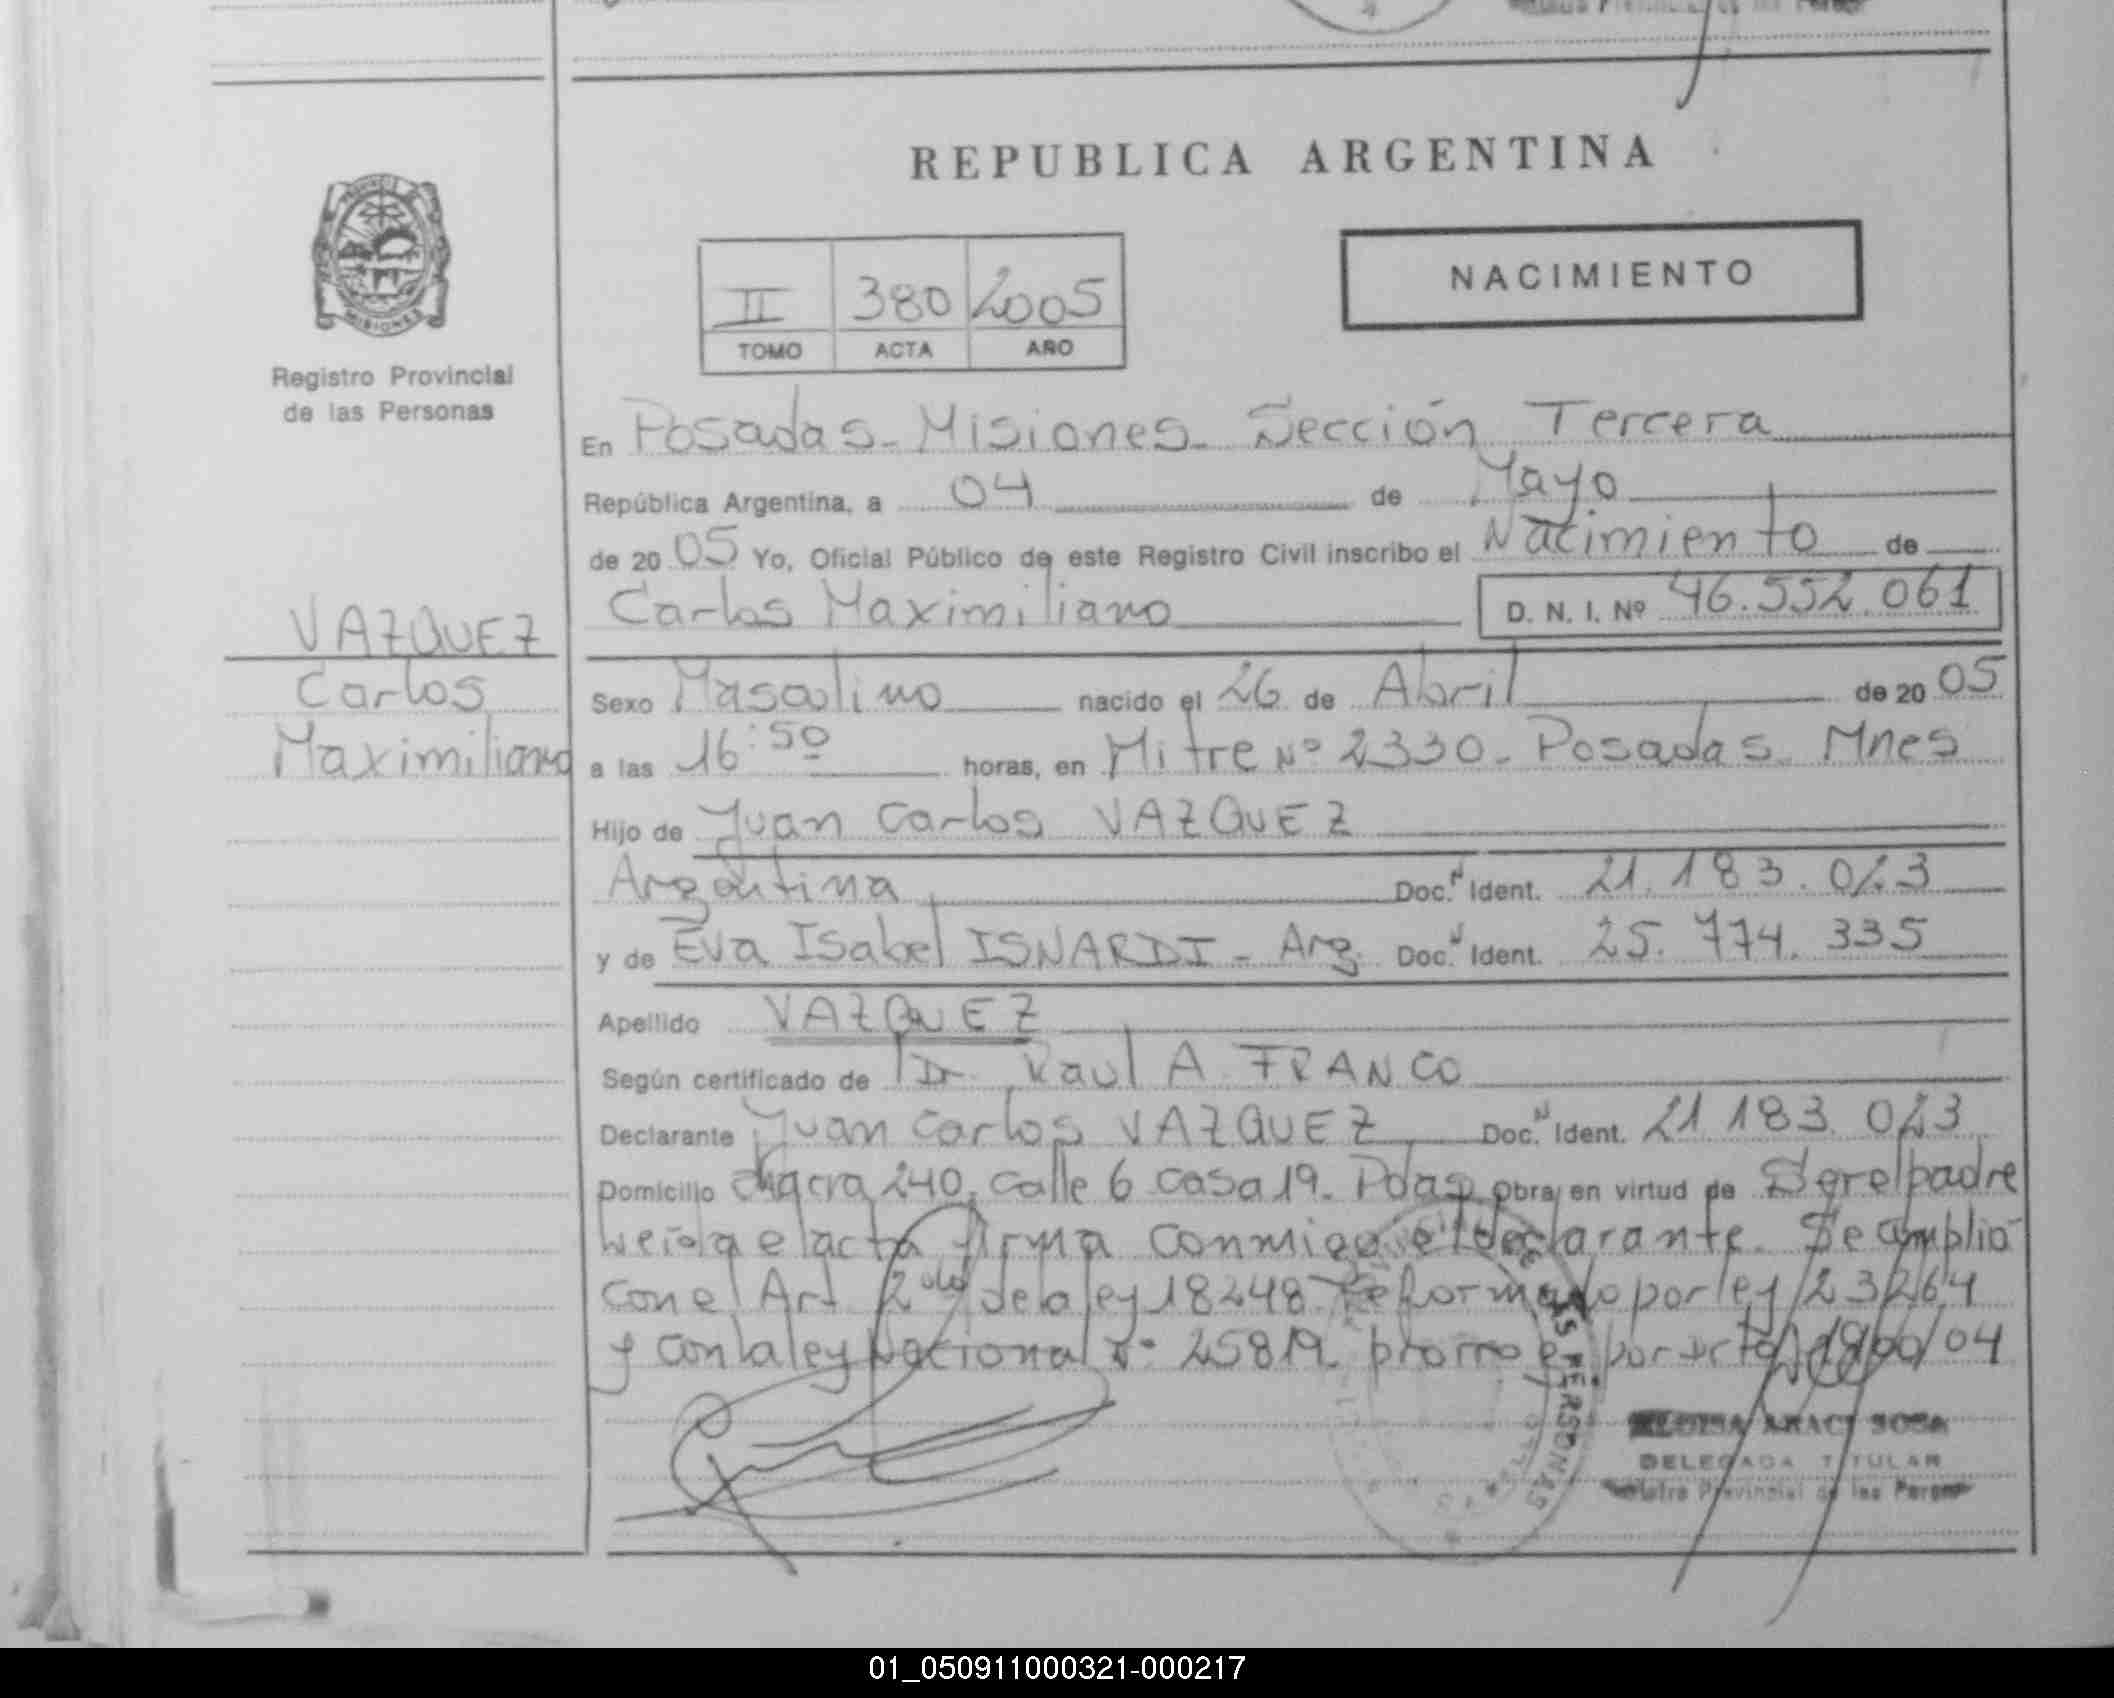 REPUBLICA ARGENTINA
NACIMIENTO
II 380 2005
TOMO ACTA AÑO
MISIONES
Registro Provincial
de las Personas
En Posadas - Misiones - Sección Tercera
República Argentina, a 04 de Mayo
de 20 05 Yo, Oficial Público de este Registro Civil inscribo el Nacimiento de
Carlos Maximiliano D. N. I. Nº 46.552.061
VAZQUEZ
Carlos
Maximiliano
Sexo Masculino nacido el 26 de Abril de 20 05
a las 16:50 horas, en Mitre Nº 2330 - Posadas - Mnes
Hijo de Juan Carlos VAZQUEZ
Argentina Doc. N Ident. 21.183.023
y de Eva Isabel ISNARDI - Arg. Doc. N Ident. 25.774.335
Apellido VAZQUEZ
Según certificado de Dr. Raul A. FRANCO
Declarante Juan Carlos VAZQUEZ Doc. N Ident. 21.183.023
Domicilio Chacra 240, Calle 6 Casa 19. Pdas obra en virtud de Ser el padre
Leída el acta firma conmigo el declarante. Se cumplió
con el Art. 2do de la ley 18248 reformado por ley 23264
y con la ley Nacional Nº 25819 por
DELEGADA TITULAR
Provincial de las
AS PERSONAS
01_050911000321-000217